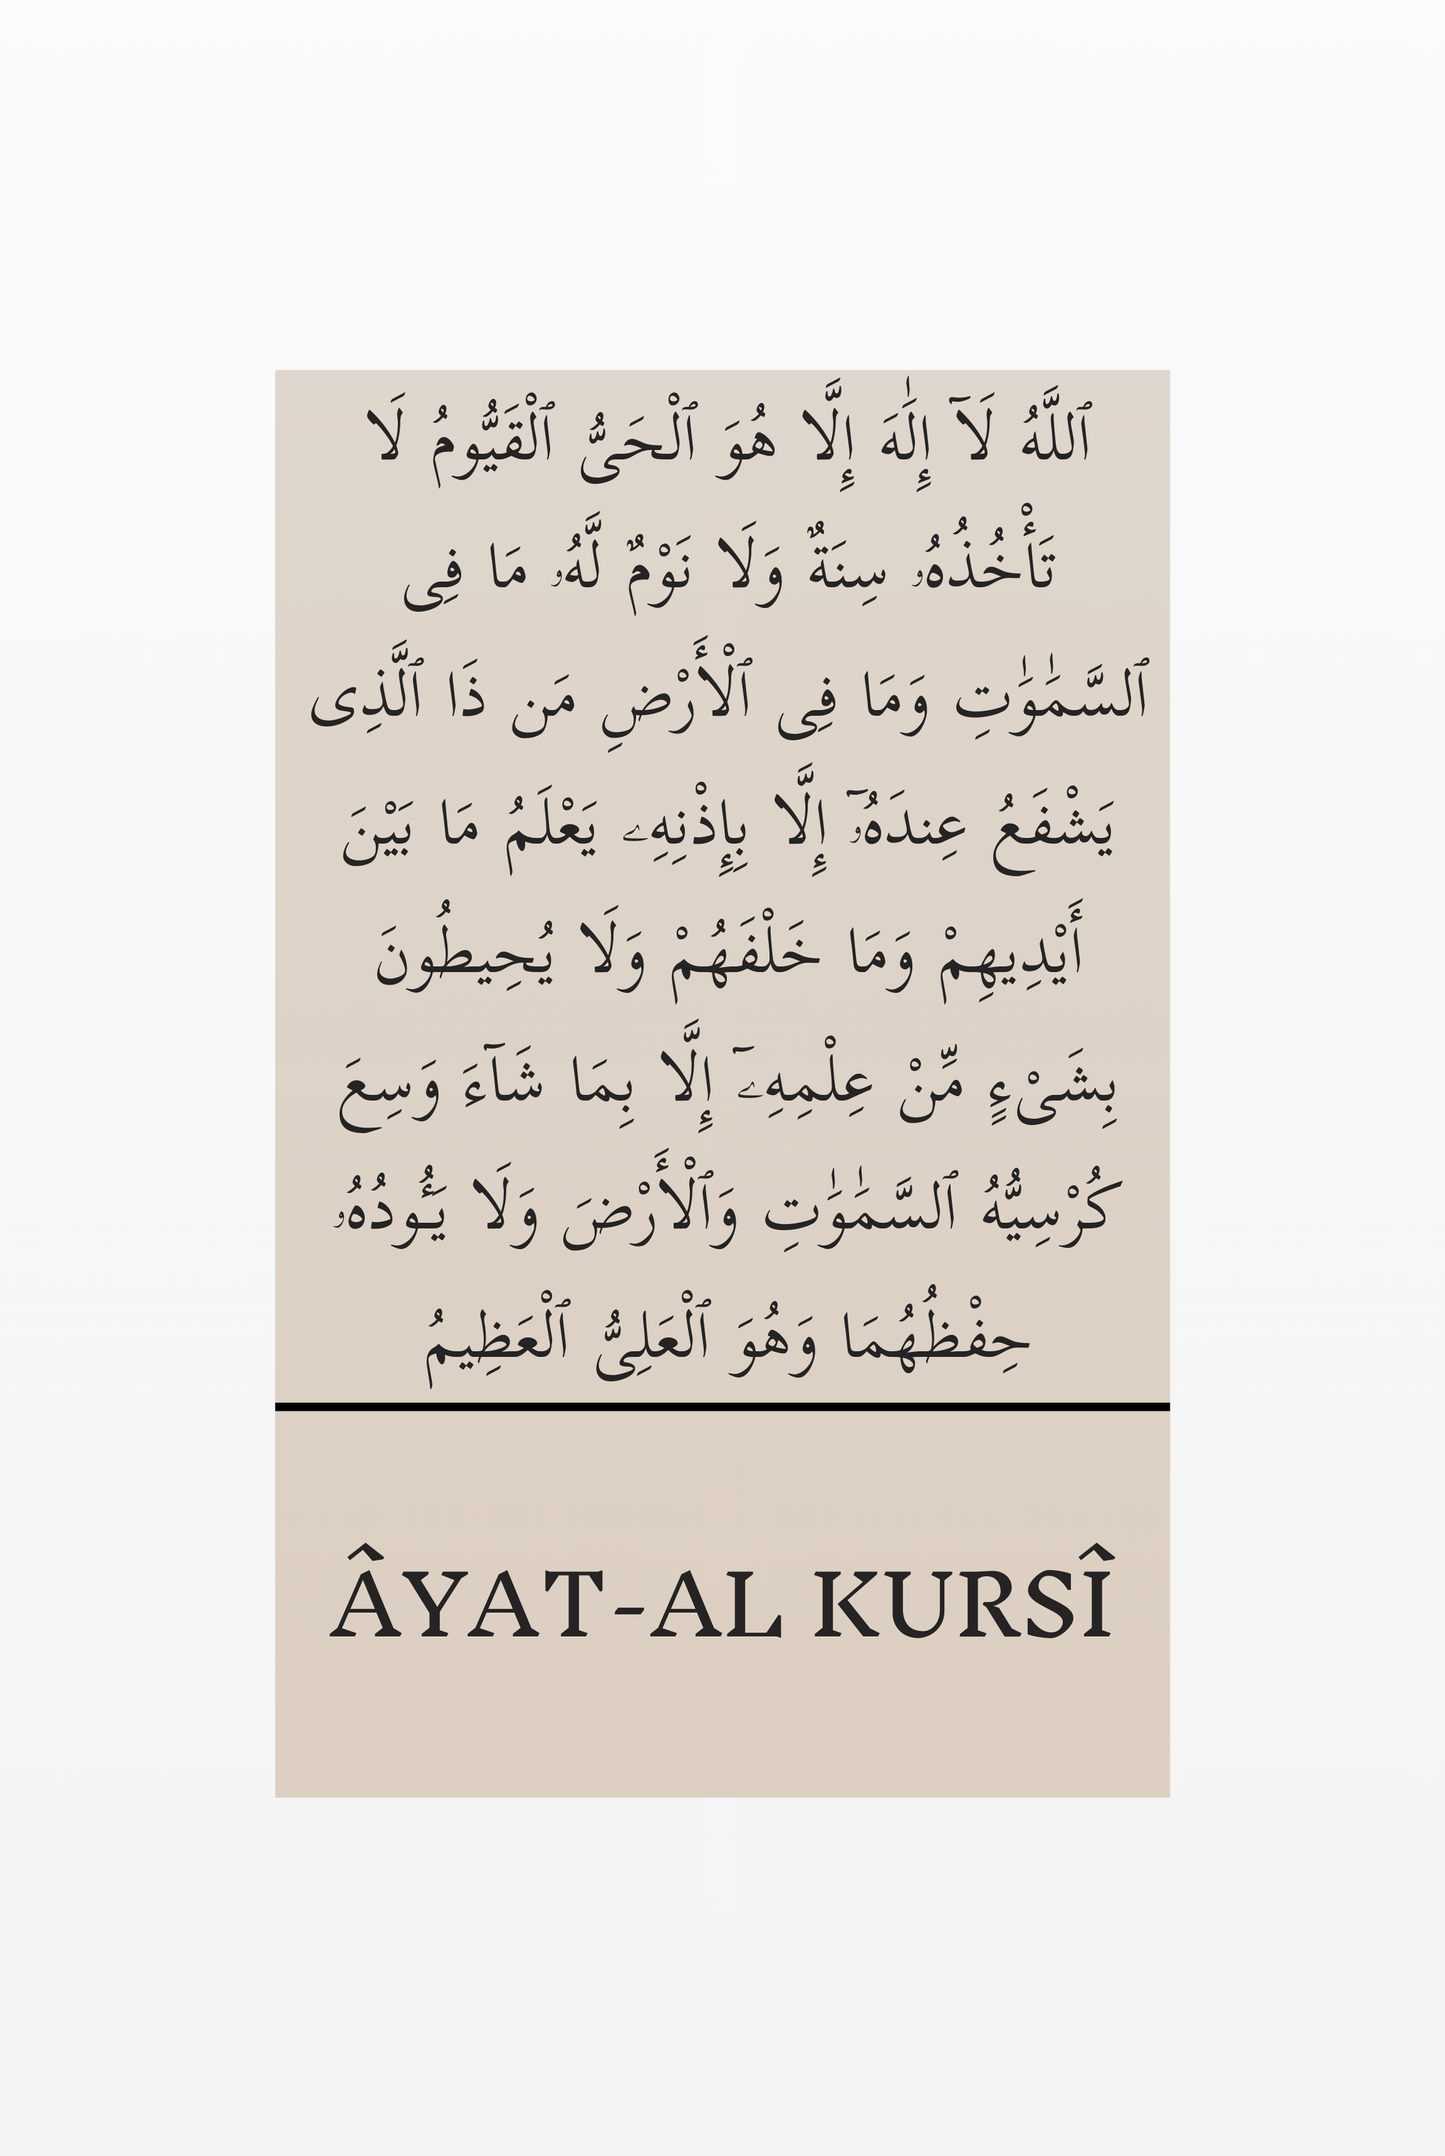 ٱللَّهُ لَآ إِلَٰهَ إِلَّا هُوَ ٱلْحَىُّ ٱلْقَيُّومُ لَا
تَأْخُذُهُۥ سِنَةٌ وَلَا نَوْمٌ لَّهُۥ مَا فِى
ٱلسَّمَٰوَٰتِ وَمَا فِى ٱلْأَرْضِ مَن ذَا ٱلَّذِى
يَشْفَعُ عِندَهُۥٓ إِلَّا بِإِذْنِهِۦ يَعْلَمُ مَا بَيْنَ
أَيْدِيهِمْ وَمَا خَلْفَهُمْ وَلَا يُحِيطُونَ
بِشَىْءٍ مِّنْ عِلْمِهِۦٓ إِلَّا بِمَا شَآءَ وَسِعَ
كُرْسِيُّهُ ٱلسَّمَٰوَٰتِ وَٱلْأَرْضَ وَلَا يَـُٔودُهُۥ
حِفْظُهُمَا وَهُوَ ٱلْعَلِىُّ ٱلْعَظِيمُ
ÂYAT-AL KURSÎ